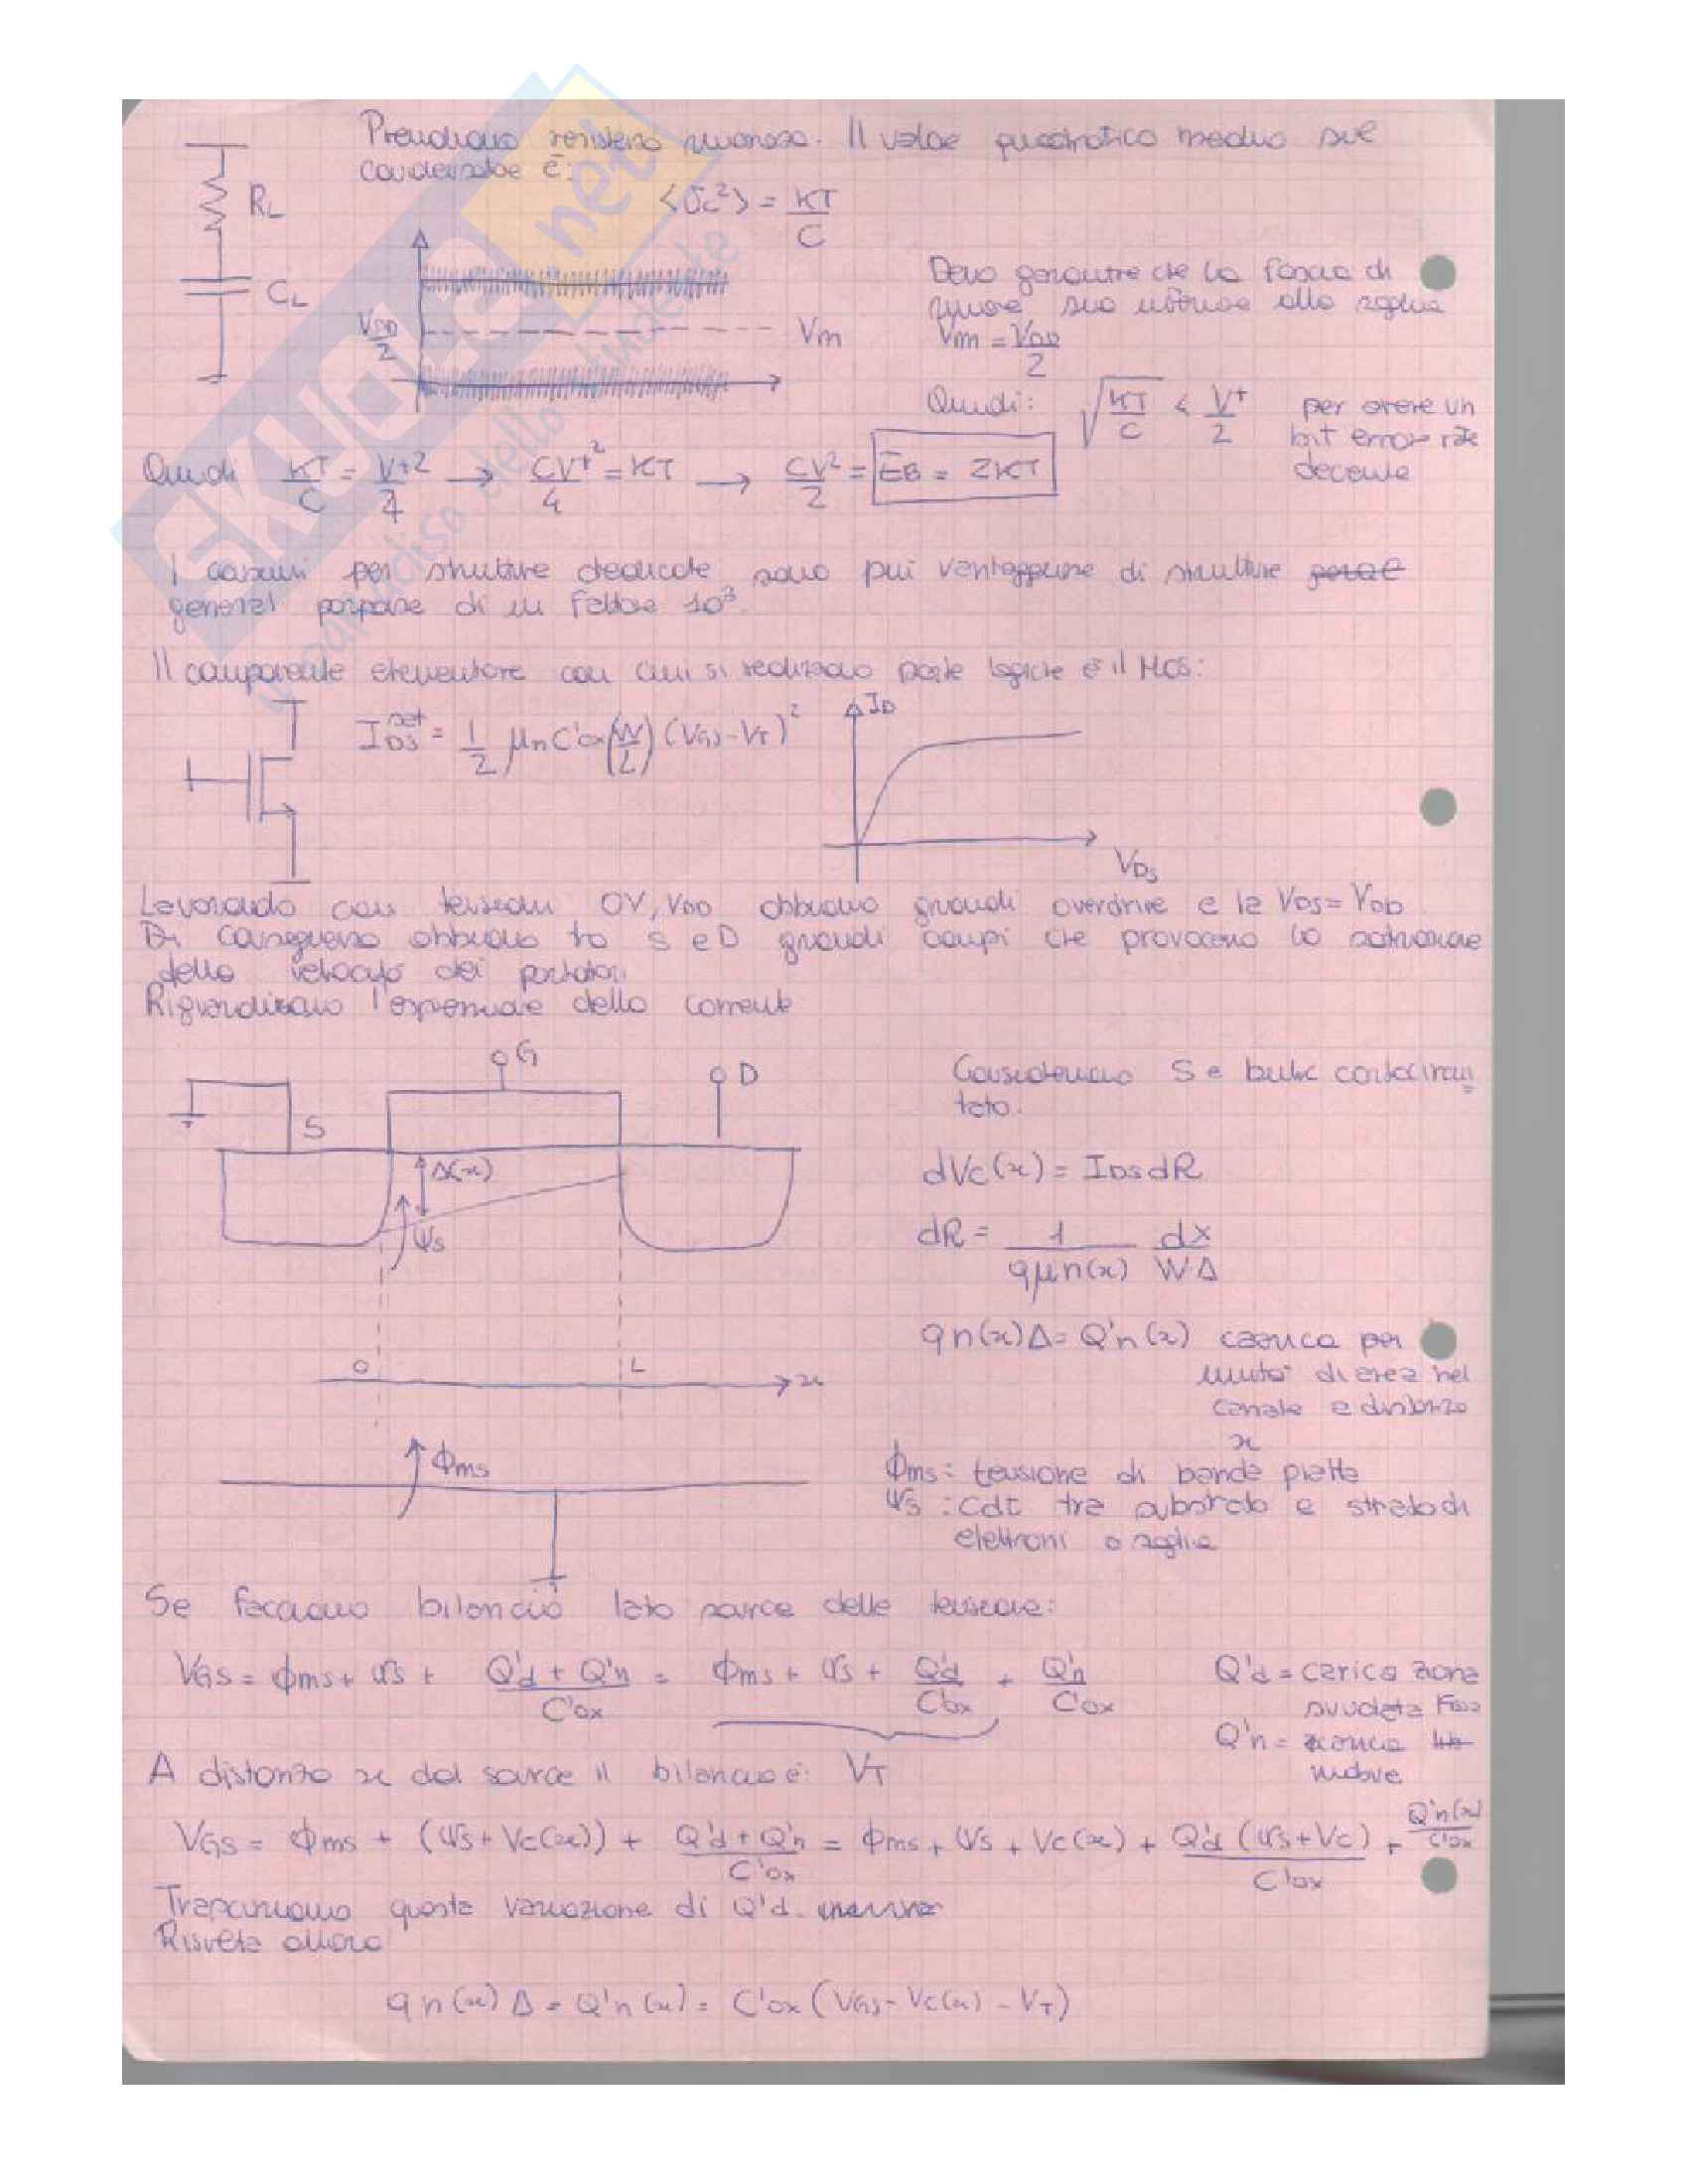 Prendiamo resistenza rumorosa. Il valore quadratico medio sul
condensatore è:
RL
<Vc²> = KT/C
CL
VDD/2
Vm
Devo garantire che la fascia di
rumore sia inferiore alla soglia
Vm = VDD/2
Quindi: √(KT/C) < V+/2 per avere un
bit error rate
decente
Quindi KT/C = V+2/4 → CV+²/4 = KT → CV²/2 = EB = 2KT
I consumi per strutture dedicate sono più vantaggiose di strutture
general purpose di un fattore 10³.
Il componente elementare con cui si realizzano porte logiche è il MOS:
IDS sat = 1/2 μn C'ox (W/L) (VGS-VT)²
ID
VDS
Lavorando con tensioni 0V, VDD abbiamo grandi overdrive e la VDS = VDD.
Di conseguenza abbiamo tra S e D grandi campi che provocano la saturazione
della velocità dei portatori
Riguardiamo l'espressione della corrente
G
D
S
Δ(x)
ψs
Consideriamo S e bulk cortocircui
tato.
dVc(x) = IDS dR
dR = 1/(qμn(x)) dx/(WΔ)
qn(x)Δ = Q'n(x) carica per
unità di area nel
canale a distanza
x
O
L
x
ϕms
ϕms: tensione di bande piatte
ψs: cdt tra substrato e strato di
elettroni a soglia
Se facciamo bilancio lato source delle tensioni:
VGS = ϕms + ψs + (Q'd + Q'n)/C'ox = ϕms + ψs + Q'd/C'ox + Q'n/C'ox
Q'd = carica zona
svuotata fissa
Q'n = carica
mobile
A distanza x dal source il bilancio è:
VT
VGS = ϕms + (ψs + Vc(x)) + (Q'd + Q'n)/C'ox = ϕms + ψs + Vc(x) + Q'd (ψs + Vc)/C'ox + Q'n(x)/C'ox
Trascuriamo questa variazione di Q'd.
Risulta allora
qn(x) Δ = Q'n(x) = C'ox (VGS - Vc(x) - VT)
SKUOLA.net
il paradiso dello studente